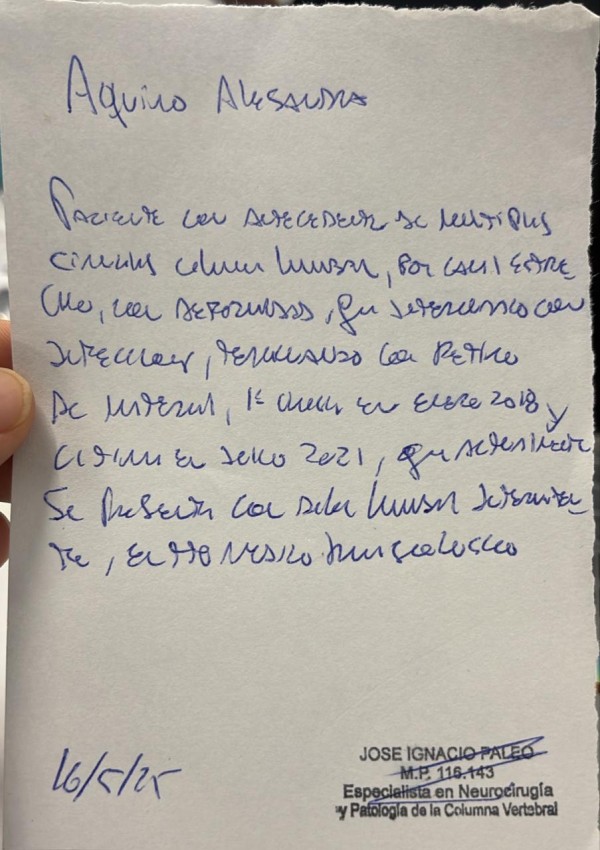 Aquino Alesandra
Paciente con antecedente de multiples
cirugias columna lumbar, por canal estre
cho, con deformidad, que intercurrio con
infeccion, terminando con retiro
de material, 1º cirugia en enero 2018 y
ultima en Julio 2021, que actualmente
Se presenta con dolor lumbar intermiten
te, en tto medico
16/5/25
JOSE IGNACIO PALEO
M.P. 116.143
Especialista en Neurocirugía
y Patología de la Columna Vertebral